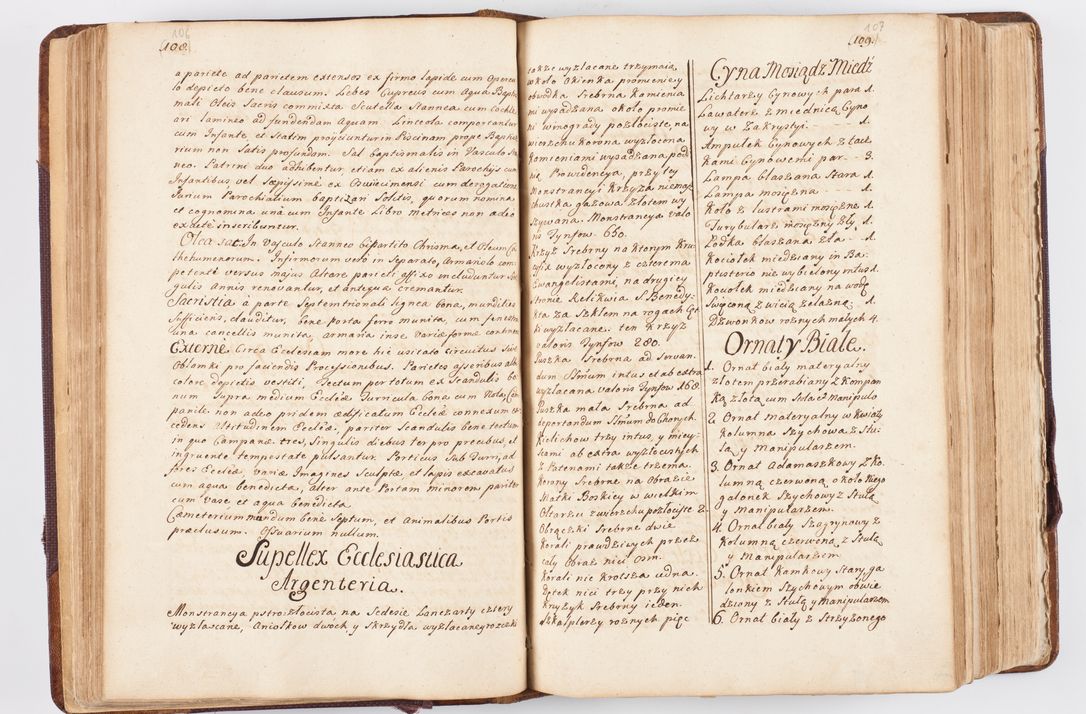 106
(108.
a pariete ad parietem extensos ex firmo lapide cum Opercu
lo depicto bene clausum. Lebes Cupreus cum aqua Bapte
mali Oleis Sacris commixta Scutella Stannea cum Cochle
ari lamineo ad fundendam Aquam Linteola comportantur
cum Infante et Statim projiciuntur in Piscinam prope Baptis
rium non Satis profundam. Sal baptismalis in Vasculo Stan
neo. Patrini duo adhibentur, etiam ex alienis Parochijs cum
Infantibus, vel Sæpissime ex Oswiecimensi cum derogatione
Jurium Parochialium baptizari Solitis, quorum nomina
et cognomina una cum Infante Libro metrices non adeo
exacte inscribuntur.
Olea sac: In Vasculo Stanneo bipartito Chrisma, et Oleum Ca
thethumenorum. Infirmorum verò in Separato, Armariolo com
petenti versus majus Altare parieti affixo includuntur Sin
gulis Annis renovantur, et antiqua cremantur.
Sacristia à parte Septemtrionali lignea bona, munditiei
Sufficiens, clauditur, bene porta ferro munita, cum fenestra
una cancellis munita, armaria inse variæ formæ continen
Externe. Circa Ecclesiam more hic usitato circuitus Sive
Oblomki pro faciendis Processionibus. Parietes asseribus alb
colore depictis vestiti, Tectum per totum ex Scandulis bo
num Supra medium Ecclæ Turricula bona cum Nola, Cam
panile non adeo pridem ædificatum Ecclæ connexum ex
cedens Altitudinem Ecclæ, pariter Scandulis bene tectum
in quo Campanæ tres, Singulis diebus ter pro precibus, et
ingruente tempestate pulsantur. Porticus Sub Turri, ad
fores Ecclæ, variæ Imagines Sculptæ, et lapis excavatus
cum aqua benedicta, alter ante Portam minorem pariter
cum Vase et aqua benedicta.
Cæmeterium mundum bene Septum, et Animalibus Portis
præclusum. Ossuarium nullum.
Supellex Ecclesiastica
Argenteria.
Monstrancya pstrozłocista na Sedesie Lanczarty cztery
wyzłacane, Aniołkow dwoch, y Skrzydła wyzłacane y rożczki
107
(109.)
także wyzłacane trzymaią
wkoło Okienka promienie, y
obwodka Srebrna kamienia
mi wysadzana około promie
ni winogrady pozłociste, na
wierzchu korona wyzłocona
kamieniami wysadzana, pod
nią Prowidencya, przy tey
Monstrancyi krzyza niemasz
chustka gazowa złotem wy
szywana. Monstrancya valo
ris Tynfow 650.
Krzyż Srebrny na ktorym Kru
cyfix wyzłocony z czterema
Ewangelistami, na drugiey
stronie Relikwia S. Benedy
kta za Szkłem na rogach Ga
ki wyzłacane. ten krzyż
valoris Tynfow 280.
Puszka Srebrna ad Servan
dum SSmum intus et ab extra
wyzłacana valoris Tynfow 168.
Puszka mała Srebrna ad
deportandum SSmum do Chorych
Kielichow trzy intus, y miey
scami ab extra wyzłoconych
z Patenami także trzema.
Korony Srebrne na Obrazie
Matki Boskiey w wielkim
Ołtarzu z wierzchu pozłociste 2.
Obrączki Srebrne dwie
Korali prawdziwych przez
cały Obraz nici Osm.
Korali nie krotsza iedna.
Pętek nici trzy przy nich
Krzyżyk Srebrny ieden.
Szkaplerzy rożnych pięc
Cyna Mosiądz Miedź
Lichtarzy Cynowych para 1.
Lawaterz z miednicą Cyno
wy w Zakrystyi. - - - 1.
Ampułek Cynowych z tacz
kami Cynowemi par - - 3.
Lampa blaszana Stara 1.
Lampa mosiężna - - - - 1.
Koło z lustrami mosiężne 1.
Turybularz mosiężny Zły 1.
Łodka blaszana Zła - - 1.
Kociołek miedziany in Ba
ptisterio nie wybielony intus 1.
Kociołek miedziany na wodę
Swięconą z wicią żelazną 1.
Dzwonkow rożnych małych 4.
Ornaty Białe.
1. Ornat biały materyalny
złotem przerabiany z kompan
ką złotą cum Stola et Manipulo
2. Ornat materyalny w kwiaty
kolumna Szychowa z Stu
łą y manipularzem.
3. Ornat Adamaszkowy z ko
lumną czerwoną około niego
galonek Szychowy z Stułą
y Manipularzem.
4. Ornat biały Szagrynowy z
Kolumną czerwoną z Stułą
y Manipularzem
5. Ornat kamkowy Stary ga
lonkiem Szychowym obwie
dziony z Stułą y Manipularzem
6. Ornat biały z Strzyżonego